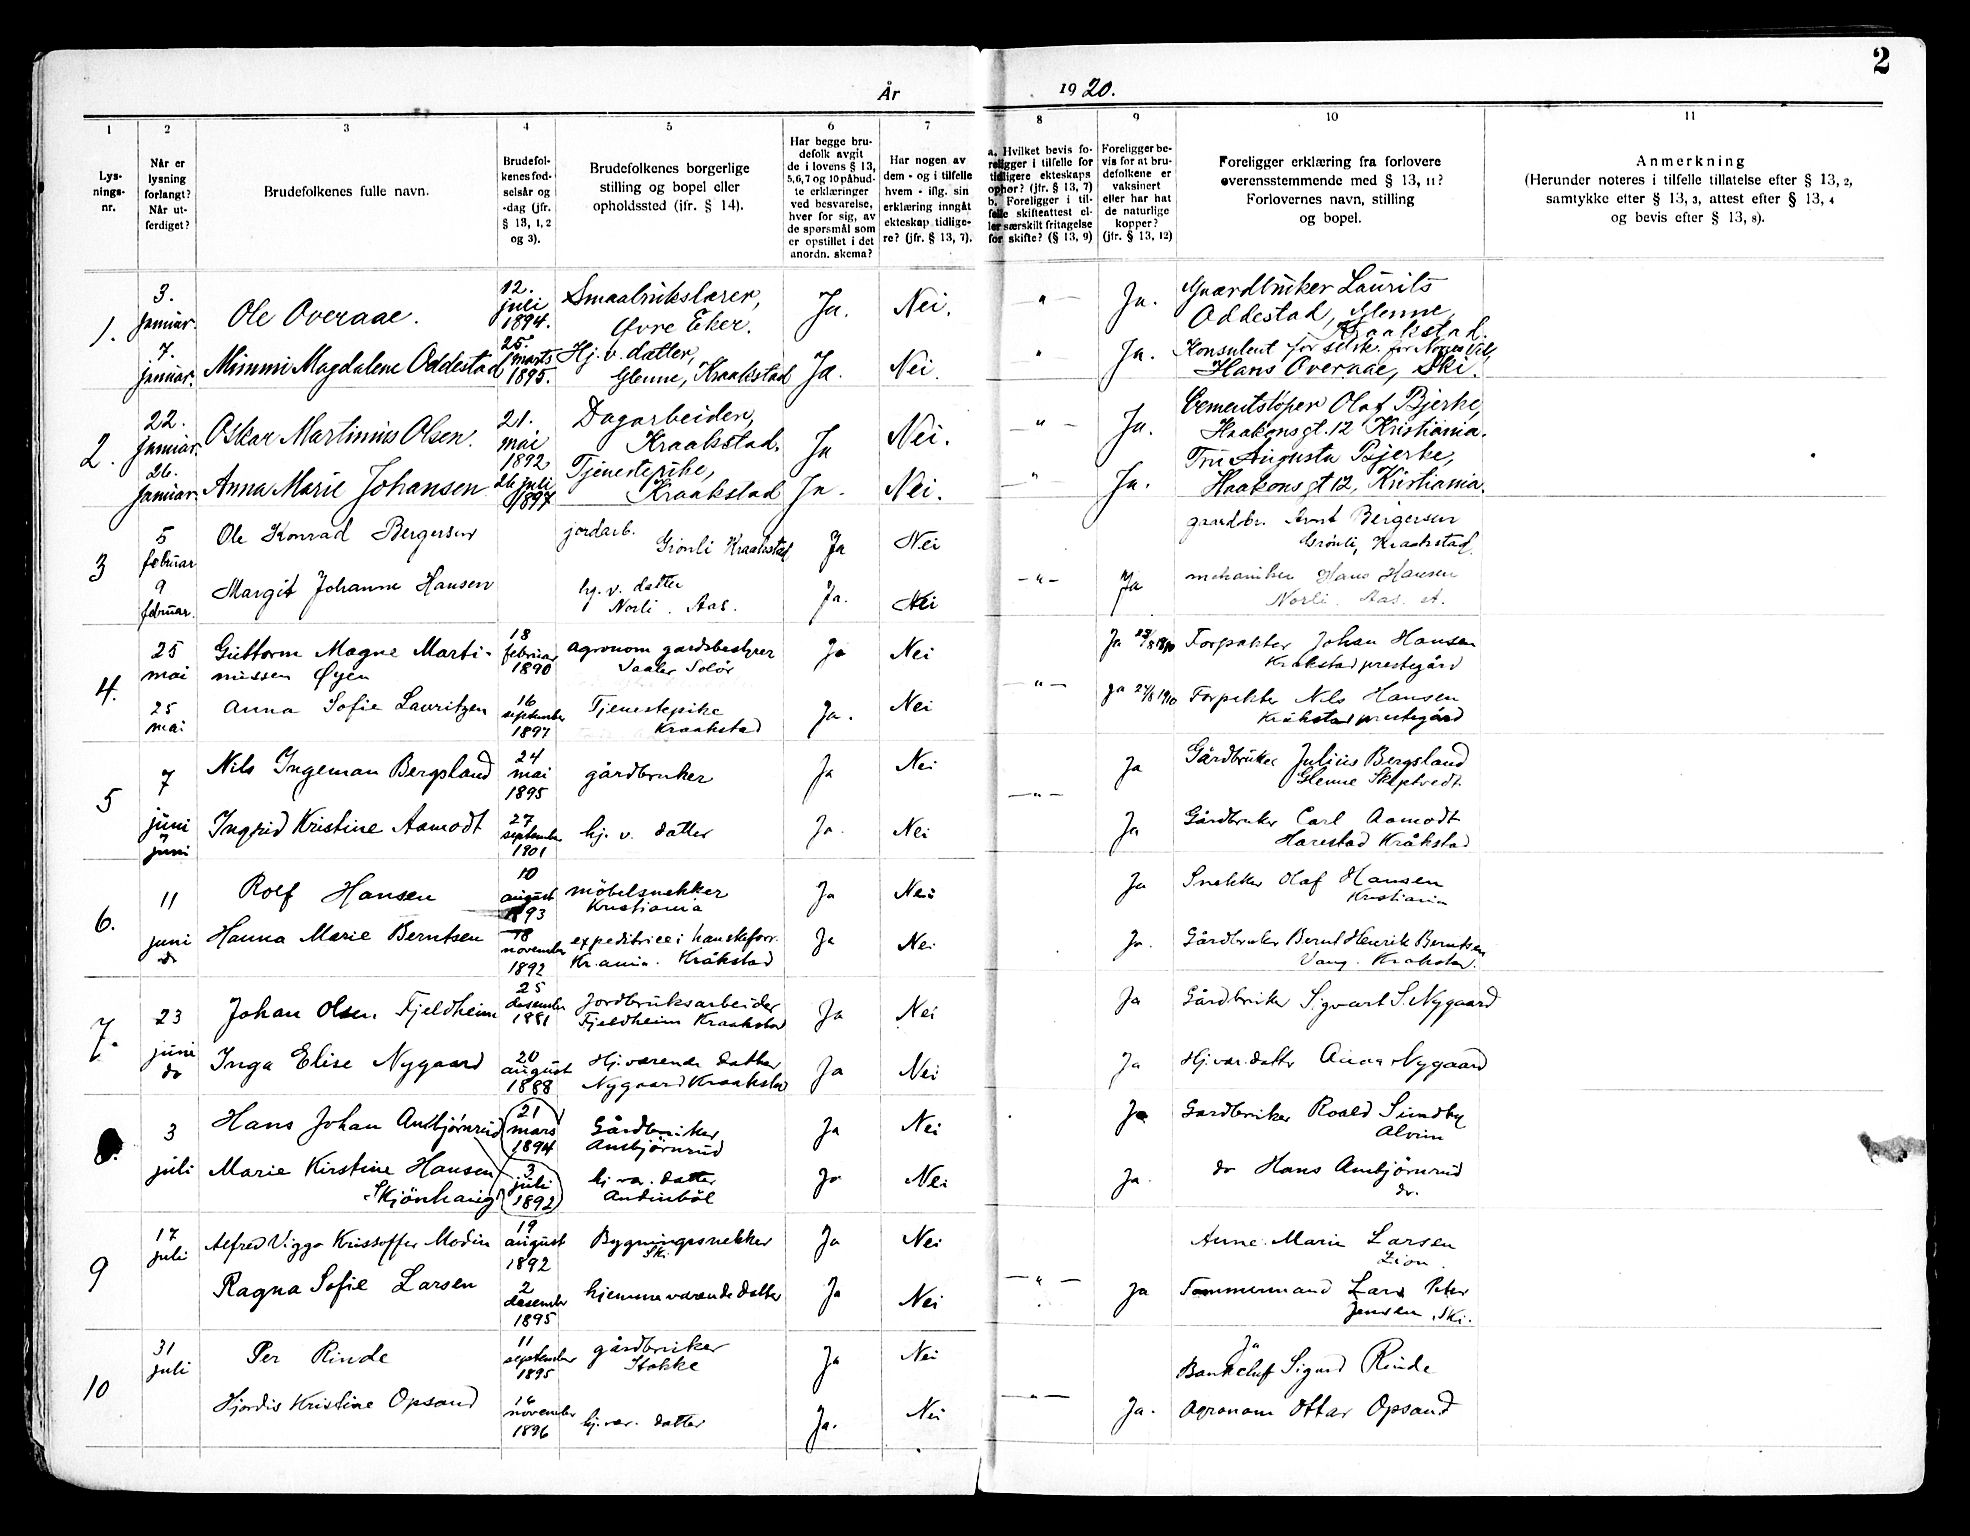 2
År 1920.
1
2
3
4
5
6
7
8
9
10
11
Lys-
nings-
nr.
Når er
lysning
forlangt?
Når ut-
ferdiget?
Brudefolkenes fulle navn.
Brudefol-
kenes fød-
selsår og
-dag (jfr.
§ 13, 1, 2
og 3).
Brudefolkenes borgerlige
stilling og bopel eller
opholdssted (jfr. § 14).
Har begge bru-
defolk avgit
de i lovens § 13,
5, 6, 7 og 10 påbud-
te erklæringer
ved besvarelse,
hver for sig, av
de spørsmål som
er opstillet i det
anordn. skema?
Har nogen av
dem - og i tilfelle
hvem - iflg. sin
erklæring inngått
ekteskap tidlige-
re? (jfr. § 13, 7).
a. Hvilket bevis fo-
religger i tilfelle for
tidligere ekteskaps
ophør? (jfr. § 13, 7)
b. Foreligger i til-
felle skifteattest el-
ler særskilt fritagelse
for skifte? (§ 13, 9)
Foreligger be-
vis for at bru-
defolkene er
vaksinert
eller har hat
de naturlige
kopper?
(jfr. § 13, 12)
Foreligger erklæring fra forlovere
overensstemmende med § 13, 11?
Forlovernes navn, stilling
og bopel.
Anmerkning
(Herunder noteres i tilfelle tillatelse efter § 13, 2,
samtykke efter § 13, 3, attest efter § 13, 4
og bevis efter § 13, 8).
1.
3.
januar.
Ole Overaae.
12.
juli
1894.
Smaabrukslærer,
Øvre Eker.
Ja.
Nei.
— " —
Ja.
Gaardbruker Laurits
Oddestad, Glenne,
Kraakstad.
7.
januar.
Mimmi Magdalene Oddestad
25.
marts
1895.
Hj. v. datter,
Glenne, Kraakstad
Ja.
Nei.
"
Ja.
Konsulent for selsk. for Norges Vel,
Hans Overaae, Ski.
2.
22.
januar.
Oskar Martinius Olsen.
21.
mai
1892
Dagarbeider,
Kraakstad.
Ja
Nei.
— " —
Ja.
Cementstøper Olaf Bjerke,
Haakonsgt. 12 Kristiania.
26.
januar.
Anna Marie Johansen
26 juli
1897
Tjenestepike,
Kraakstad
Ja.
Nei.
— " —
Ja.
Fru Augusta Bjerke,
Haakonsgt 12, Kristiania.
3
5
februar
Ole Konrad Bergersen
jordarb.
Grønli Kraakstad
Ja
Nei
gaardbr. Arnt Bergersen
Grönli, Kraakstad.
9
februar.
Margit Johanne Hansen
hj. v. datter
Norli. Aas.
Ja.
Nei
— " —
Ja
mekaniker Hans Hansen
Norli. Aas. st.
4.
25
mai
Guttorm Magne Marti-
nussen Øyen
18
februar
1890
agronom gardsbestyrer
Vaaler Solør
Ja
Nei
Ja
Forpakter Johan Hansen
Kråkstad prestegård
25
mai
Anna Sofie Lauritzen
16
september
1897
Tjenestepike
Kraakstad
Ja.
Nei
— " —
Ja
Forpakter Nils Hansen
Kråkstad prestegård
5
7
juni
Nils Ingeman Bergsland
24
mai
1895
gårdbruker
Ja
Nei
— " —
Ja
Gårdbruker Julius Bergsland
Glenne Skiptvedt.
7
juni
Ingrid Kristine Aamodt
27
september
1901
hj. v. datter
Ja.
Nei
Ja
Gårdbruker Carl Aamodt
Harestad Kråkstad
6.
11
juni
Rolf Hansen
10
august
1893
möbelsnekker
Kristiania
Ja
Nei
Ja
Snekker Olaf Hansen
Kristiania
do
Hanna Marie Berntsen
18
november
1892
expeditrice i hanskeforr.
Kr.ania. Kråkstad
Ja
Nei
Ja.
Gårdbruker Bernt Henrik Berntsen
Vang. Krakstad.
7.
23
juni
Johan Olsen Fjeldheim
25
desember
1881
Jordbruksarbeider
Fjeldheim Kraakstad
Ja
Nei
Ja
Gårdbruker Sigvart S. Nygaard
do
Inga Elise Nygaard
20
august
1888
Hj.værende datter
Nygaard Kraakstad
Ja
Nei
Ja
Hj.vær. datter Anna Nygaard
3
juli
Hans Johan Ansbjørnrud
21
mars
1894
Gårdbruker
Ansbjörnrud
Ja
Nei
Ja
Gardbruker Roald Sundby
Alvim
Marie Kirstine Hansen
Skjönhaug
3
juli
1892
hj. vær. datter
Audenböl
Ja
Nei
Ja.
do Hans Ansbjörnrud
do.
9
17
juli
Alfred Viggo Kristoffer Modin
19
august
1892
Bygningssnekker
Ski
Ja
Nei
Anne Marie Larsen
Zion.
Ragna Sofie Larsen
2
desember
1895
hjemmeværende datter
Ja
Nei
— " —
Ja
Tømmermand Lars Peter
Jensen, Ski.
10
31
juli
Per Rinde
11
september
1895
gårdbruker
Stokke
Ja
Nei
Ja
Bankchef Sigurd Rinde
Hjordis Kristine Opsand
16
november
1896
hj. vær. datter
Ja.
Nei
— " —
Ja.
Agronom Ottar Opsand